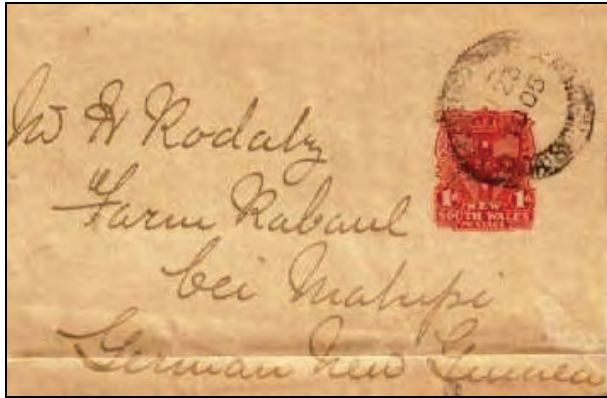 H Rodatz
Farm Rabaul
bei Matupi
German New Guinea
28
05
1 1
NEW
SOUTH WALES
POSTAGE